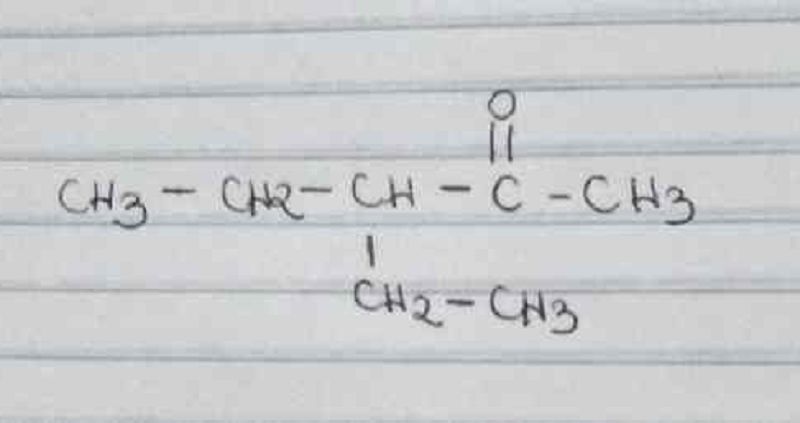 O
||
CH3 - CH2 - CH - C - CH3
|
CH2 - CH3